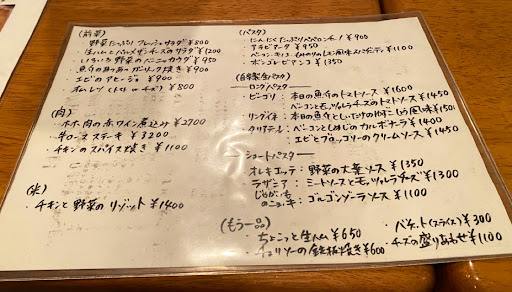 (前菜)
・野菜たっぷり フレッシュサラダ ¥800
・生ハムとパルメザンチーズのサラダ ¥1200
・いろいろ野菜のバーニャカウダ ¥950
・魚介の ガーリック焼き ¥900
・エビのアヒージョ ¥900
・オムレツ (トマト or チーズ) ¥800
(肉)
・ホホ肉の赤ワイン煮込み ¥2700
・牛ロースステーキ ¥3200
・チキンのスパイス焼き ¥1100
(米)
・チキンと野菜のリゾット ¥1400
(パスタ)
・にんにくたっぷりペペロンチーノ ¥900
・アラビアータ ¥950
・ベーコン・キノコ レモン風味 ¥1100
・ボンゴレビアンコ ¥1350
(自家製生パスタ)
ロングパスタ
・ビーゴリ:本日の魚介のトマトソース ¥1600
ベーコンとモッツァレラチーズのトマトソース ¥1450
・リングイネ:本日の魚介としいたけのゆずこしょう風味 ¥1500
・タリアテレ:ベーコンとしめじのカルボナーラ ¥1400
エビとブロッコリーのクリームソース ¥1450
ショートパスタ
・オレキエッテ:野菜の大葉ソース ¥1350
・ラザニア:ミートソースとモッツァレラチーズ ¥1300
・じゃがいものニョッキ:ゴルゴンゾーラソース ¥1100
(もう一品)
・ちょこっと生ハム ¥650
・チョリソーの鉄板焼き ¥600
・バゲット(スライス) ¥300
・チーズの盛りあわせ ¥1100